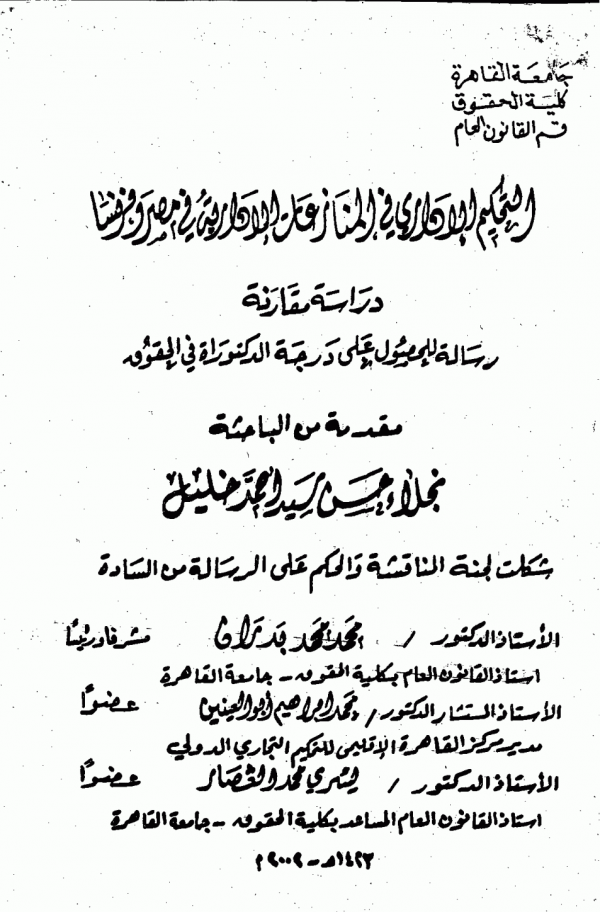 جامعة القاهرة
كلية الحقوق
قسم القانون العام
التحكيم الإداري في المنازعات الإدارية في مصر وفرنسا
دراسة مقارنة
رسالة للحصول على درجة الدكتوراة في الحقوق
مقدمة من الباحثة
نجلاء حسن سيد أحمد خليل
شكلت لجنة المناقشة والحكم على الرسالة من السادة
الأستاذ الدكتور / محمد محمد بدران مشرفا ورئيسا
استاذ القانون العام بكلية الحقوق - جامعة القاهرة
الأستاذ المستشار الدكتور / محمد ابراهيم أبو العينين عضوًا
مدير مركز القاهرة الإقليمى للتحكيم التجاري الدولي
الأستاذ الدكتور / يسري محمد العصار عضوًا
استاذ القانون العام المساعد بكلية الحقوق - جامعة القاهرة
١٤٢٣هـ - ٢٠٠٢م